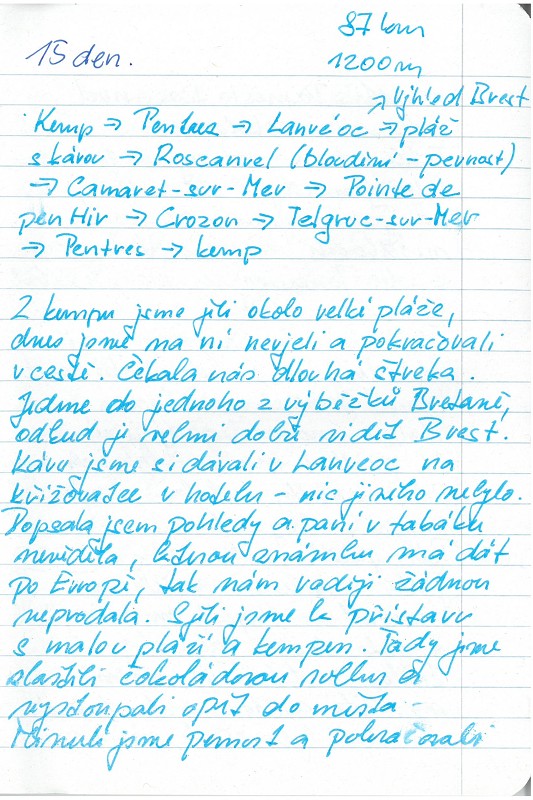 87 km
15 den.
1200 m
→ Výhled Brest
Kemp → Pentres → Lanvéoc → pláž
s kávou → Roscanvel (bloudění - pevnost)
→ Camaret-sur-Mer → Pointe de
pen Hir → Crozon → Telgruc-sur-Mer
→ Pentres → kemp
Z kempu jsme jeli okolo velké pláže,
dnes jsme na ni nevjeli a pokračovali
v cestě. Čekala nás dlouhá štreka.
Jedme do jednoho z výběžků Bretaně,
odkud je velmi dobře vidět Brest.
Kávu jsme si dávali v Lanveoc na
křižovatce v hotelu - nic jiného nebylo.
Dopsala jsem pohledy a paní v tabáku
nevěděla, kterou známku má dát
po Evropě, tak nám raději žádnou
neprodala. Sjeli jsme k přístavu
s malou pláží a kempem. Tady jsme
slastili čokoládovou rollku a
vystoupali opět do města -
Minuli jsme pevnost a pokračovali